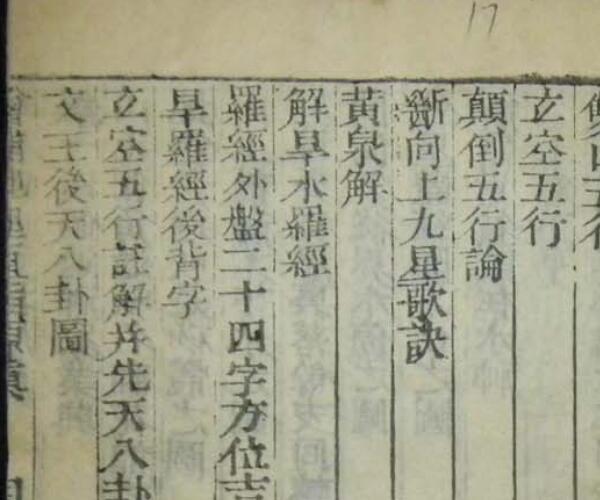 17
雙山五行
玄空五行
顛倒五行論
斷向上九星歌訣
黃泉解
解旱水羅經
羅經外盤二十四字方位吉
旱羅經後背字
玄空五行註解并先天八卦
文王後天八卦圖